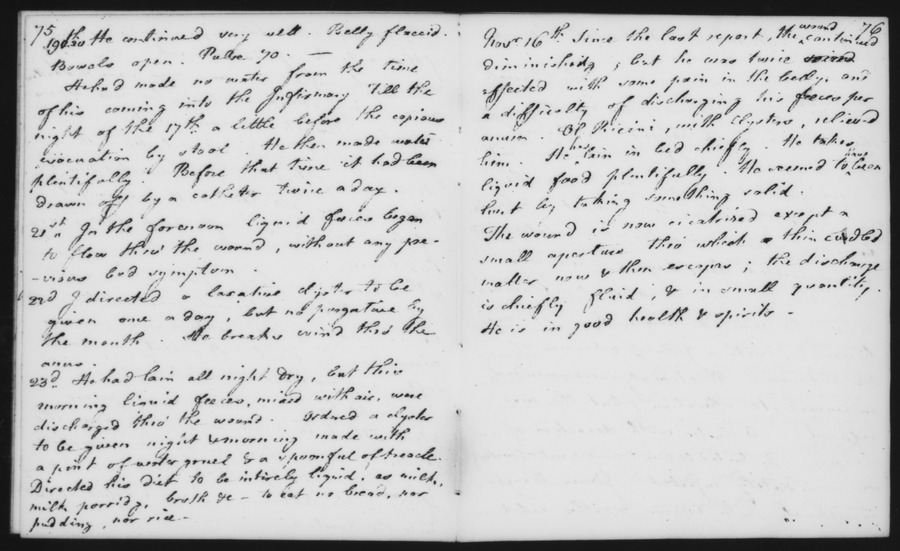 75
19th & 20 He continued very well. Belly flaccid.
Bowels open. Pulse 70. —
He had made no water from the time
of his coming into the Infirmary 'till the
night of the 17th a little before the copious
evacuation by stool. He then made water
plentifully. Before that time it had been
drawn off by a catheter twice a day.
21st In the forenoon liquid fæces began
to flow thro' the wound, without any pre-
-vious bad symptom.
22d I directed a laxative clyster to be
given once a day, but no purgative by
the mouth. He breaks wind thro' the
anus.
23d He had lain all night dry, but this
morning liquid fæces, mixed with air, were
discharged thro' the wound. Ordered a clyster
to be given night & morning made with
a pint of water gruel & a spoonful of treacle.
Directed his diet to be intirely liquid, as milk,
milk porridg, broth &c – to eat no bread, nor
pudding, nor rice –
76
Novr 16th Since the last report, the wound continued
diminishedg; but he was twice
affected with some pain in the belly, and
a difficulty of discharging his fæces per
anum. Ol. Ricini, with clysters, relieved
him. He has lain in bed chiefly. He takes
liquid food plentifully. He seemed to have been
hurt by taking something solid.
The wound is now cicatrized except a
small aperture thro' which a thin curdled
matter now & then escapes; the discharge
is chiefly fluid, & in small quantity.
He is in good health & spirits –